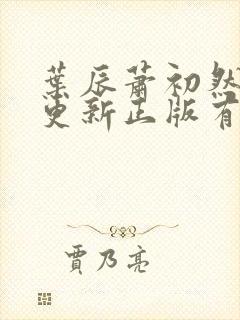 葉辰蕭初然
更新正版有
賈乃亮